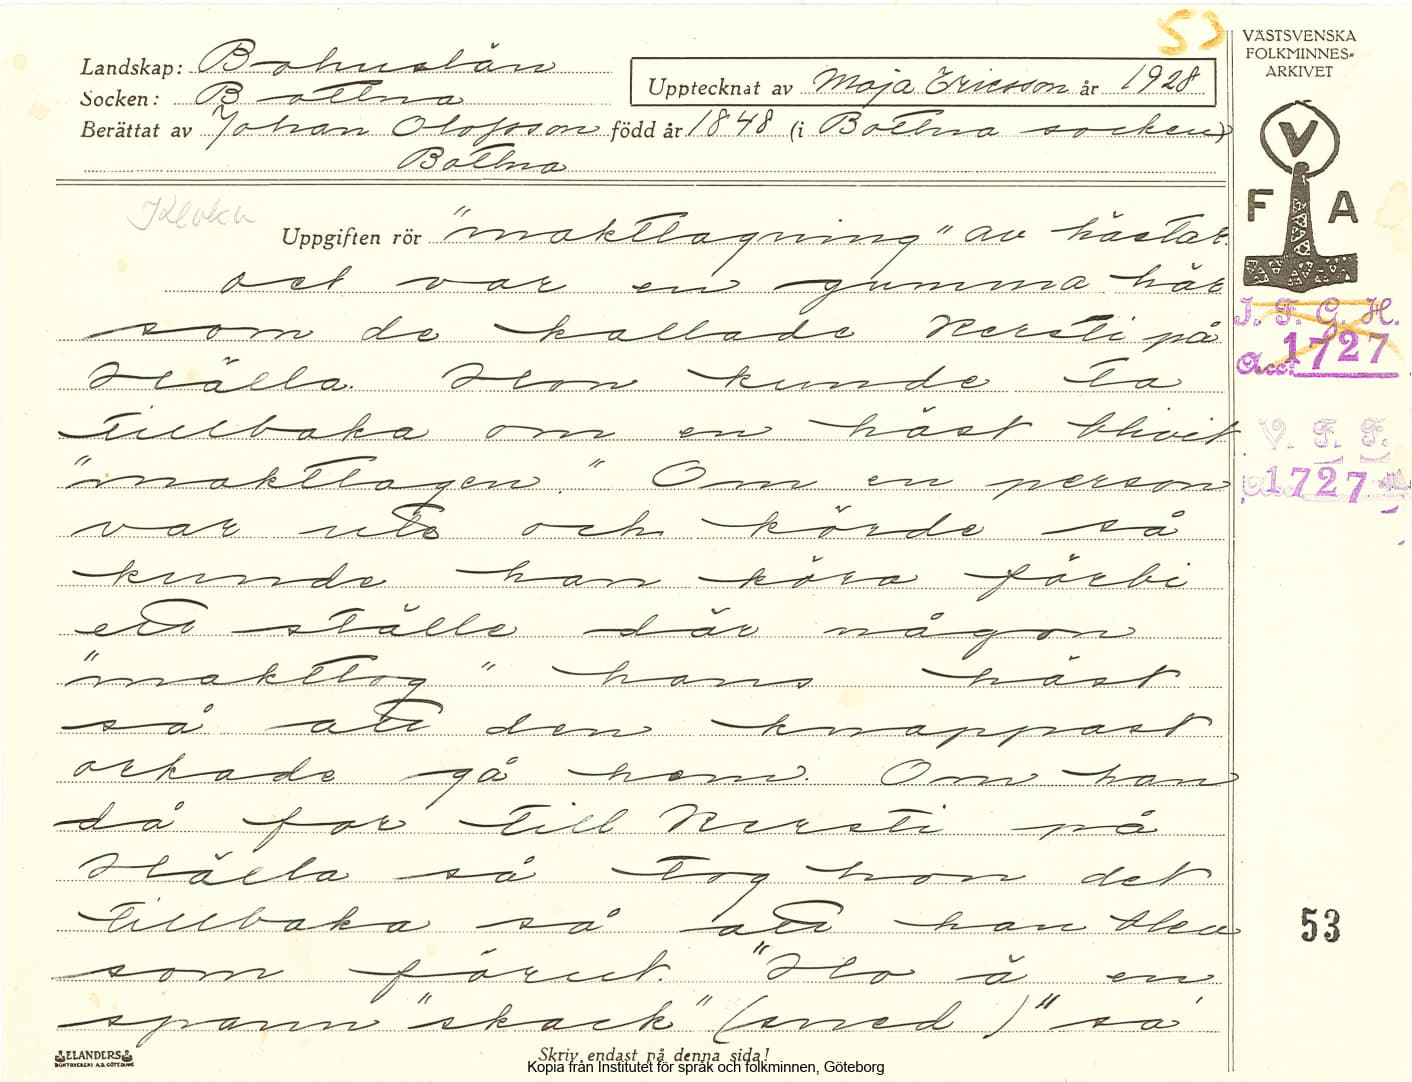 53
Landskap: Bohuslän
Socken: Bottna
Upptecknat av Maja Ericsson år 1928
Berättat av Johan Olofsson född år 1848 (i Bottna socken)
Bottna
VÄSTSVENSKA
FOLKMINNES-
ARKIVET
V
F A
I. F. G. H.
Acc: 1727
V. F. F.
1727
53
Kloka
Uppgiften rör "makttagning" av hästar.
Det var en gumma här
som de kallade Kersti på
Hälla. Hon kunde ta
tillbaka om en häst blivit
"makttagen". Om en person
var ute och körde så
kunde han köra förbi
ett ställe där någon
"makttog" hans häst
så att den knappast
orkade gå hem. Om han
då for till Kersti på
Hälla så tog hon det
tillbaka så att han blev
som förut. "Ho ä en
spann "skack" (sned)" sa
ELANDERS
BOKTRYCKERI A.B. GÖTEBORG
Skriv endast på denna sida!
Kopia från Institutet för språk och folkminnen, Göteborg